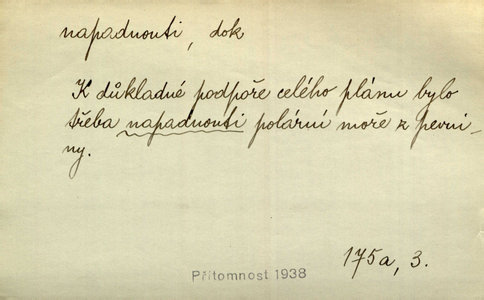 napadnouti, dok
K důkladné podpoře celého plánu bylo
třeba napadnouti polární moře z pevni-
ny.
175a, 3.
Přítomnost 1938